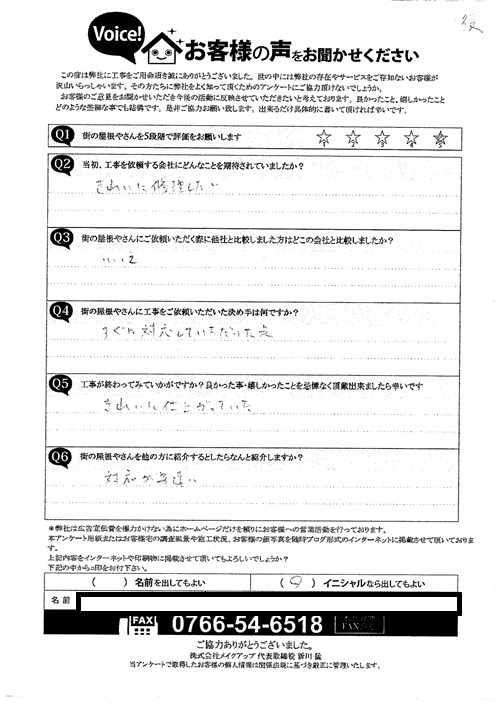 Voice!
お客様の声をお聞かせください
この度は弊社に工事をご用命頂き誠にありがとうございました。世の中には弊社の存在やサービスをご存知ないお客様が
沢山いらっしゃいます。その方たちに弊社をよく知って頂くためのアンケートにご協力頂けないでしょうか。
お客様のご意見をお聞かせいただき今後の活動に反映させていただきたいと考えております。良かったこと、嬉しかったこと
どのような些細な事でも結構です。是非ご協力お願い致します。出来るだけ具体的に書いて頂ければ幸いです。
Q1 街の屋根やさんを5段階で評価をお願いします
1 2 3 4 5
Q2 当初、工事を依頼する会社にどんなことを期待されていましたか?
きれいに修理したい
Q3 街の屋根やさんにご依頼いただく際に他社と比較しました方はどこの会社と比較しましたか?
いいえ
Q4 街の屋根やさんに工事をご依頼いただいた決め手は何ですか?
すぐに対応していただいた点
Q5 工事が終わってみていかがですか?良かった事・嬉しかったことを忌憚なく頂戴出来ましたら幸いです
きれいに仕上がっていた
Q6 街の屋根やさんを他の方に紹介するとしたらなんと紹介しますか?
対応が早い
*弊社は広告宣伝費を極力かけない為にホームページだけを頼りにお客様への営業活動を行っております。
本アンケート用紙またはお客様宅の調査風景や施工状況、お客様の顔写真を随時ブログ形式のインターネットに掲載させて頂いておりま
す。
上記内容をインターネットや印刷物に掲載させて頂いてもよろしいでしょうか?
下記の中から○印をお付け下さい。
( ) 名前を出してもよい ( ○ ) イニシャルなら出してもよい
名前
FAX 0766-54-6518
ご協力ありがとうございました。
株式会社メイクアップ 代表取締役 新川 猛
当アンケートで取得したお客様の個人情報は関係法規に基づき厳正に管理いたします。